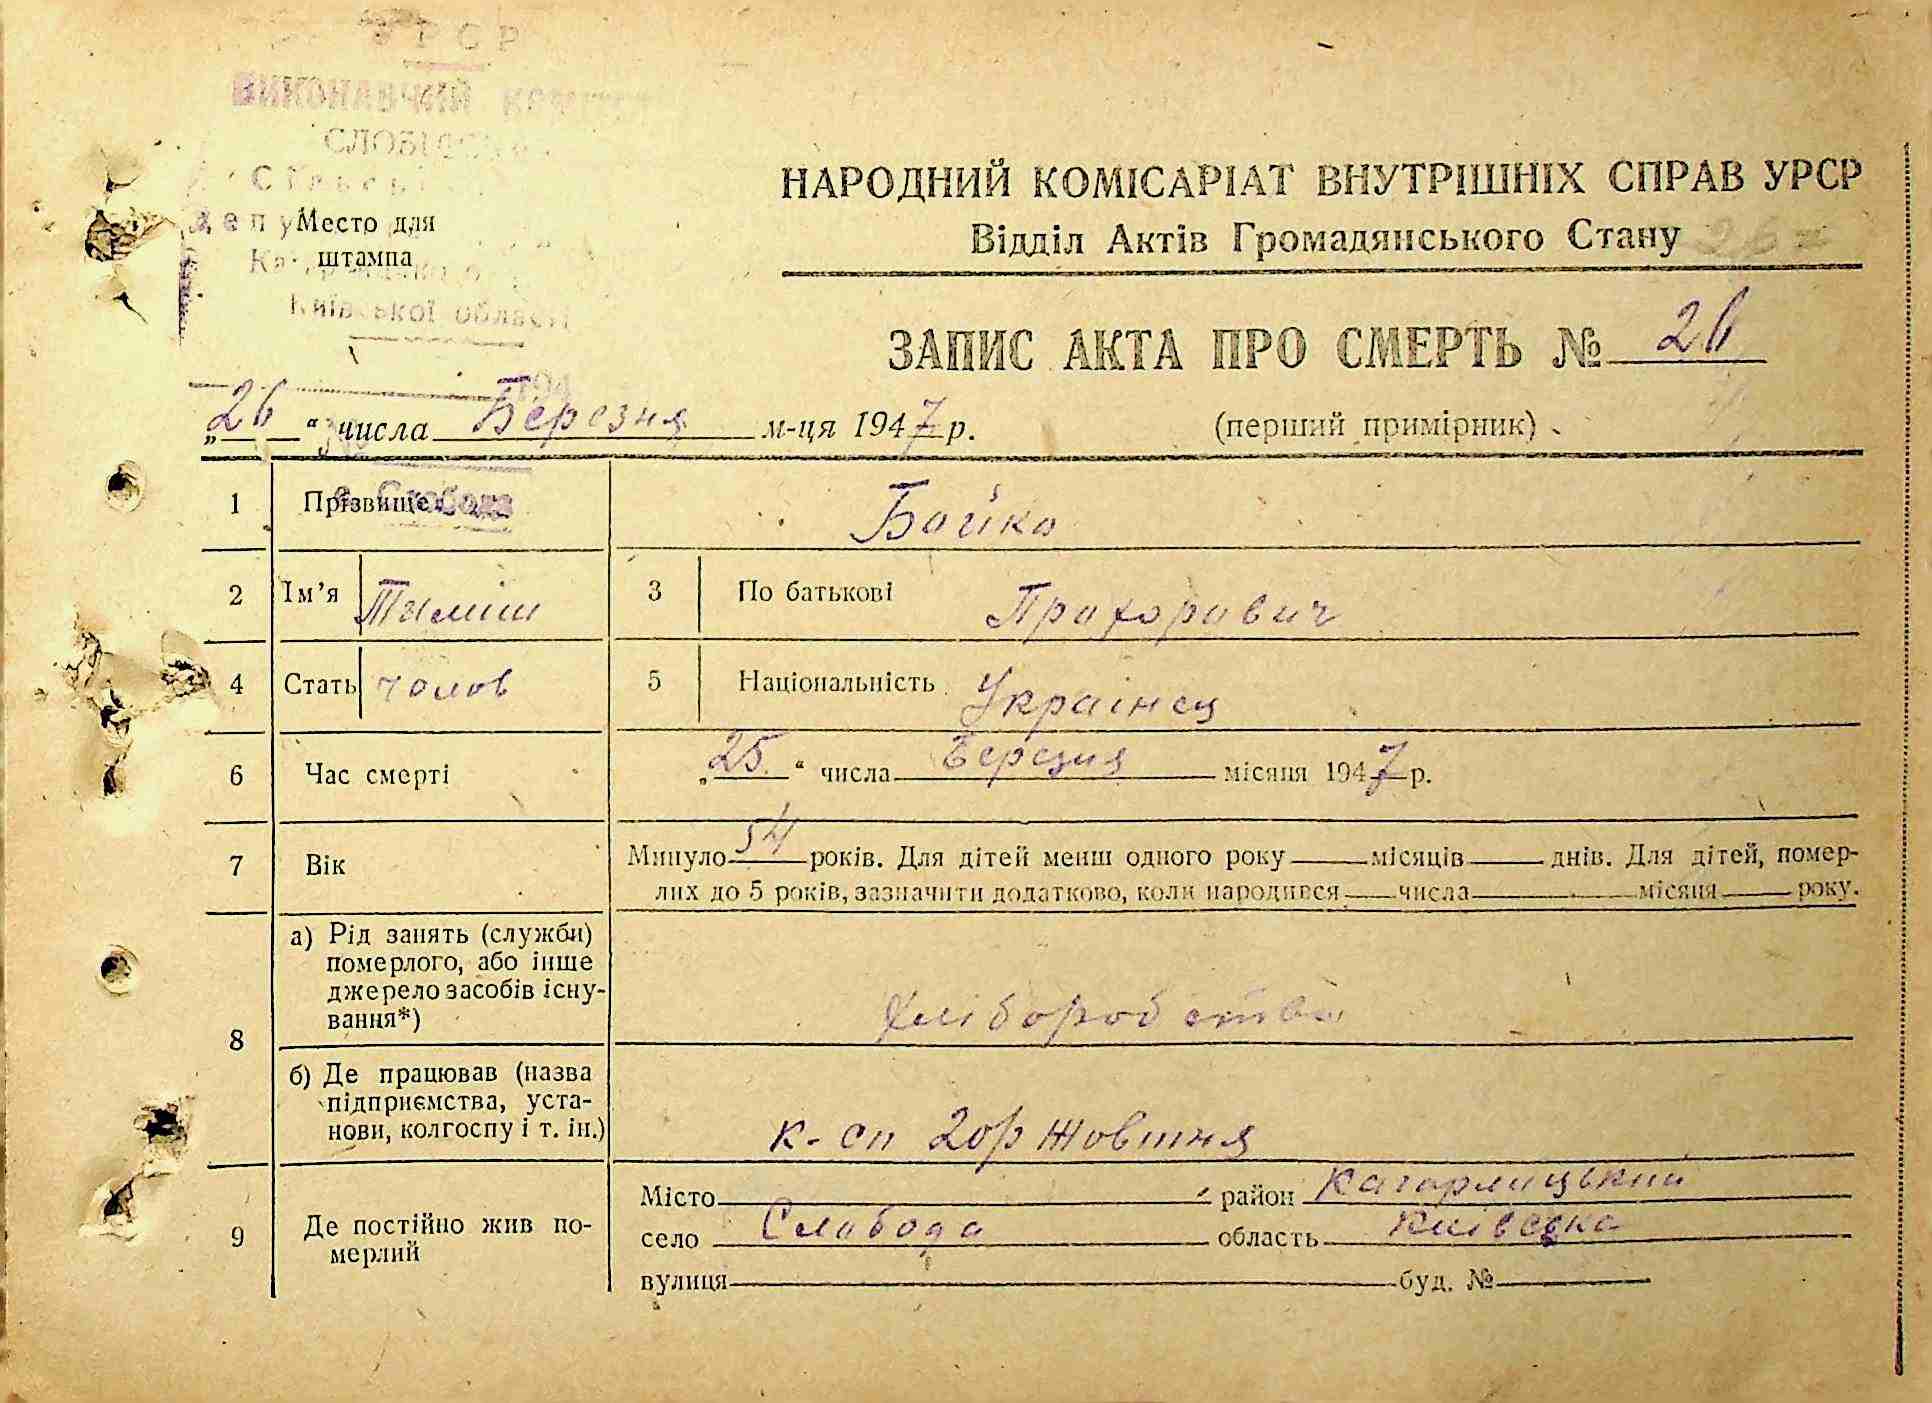 УРСР
ВИКОНАВЧИЙ
Место для
штампа
Київської області
НАРОДНИЙ КОМІСАРІАТ ВНУТРІШНІХ СПРАВ УРСР
Відділ Актів Громадянського Стану
ЗАПИС АКТА ПРО СМЕРТЬ № 26
„26“ числа Березня м-ця 1947 р. (перший примірник)
с. Слобода
1 Прізвище Бойко
2 Ім'я Тиміш 3 По батькові Прохорович
4 Стать чолов 5 Національність Українец
6 Час смерті „25“ числа Березня місяця 1947 р.
7 Вік Минуло 54 років. Для дітей менш одного року місяців днів. Для дітей, помер-
лих до 5 років, зазначити додатково, коли народився числа місяця року.
8 а) Рід занять (служби)
померлого, або інше
джерело засобів існу-
вання*) хліборобство
б) Де працював (назва
підприємства, уста-
нови, колгоспу і т. ін.) к-сп 20 р Жовтня
9 Де постійно жив по-
мерлий
Місто район Кагарлицький
село Слобода область Київська
вулиця буд. №